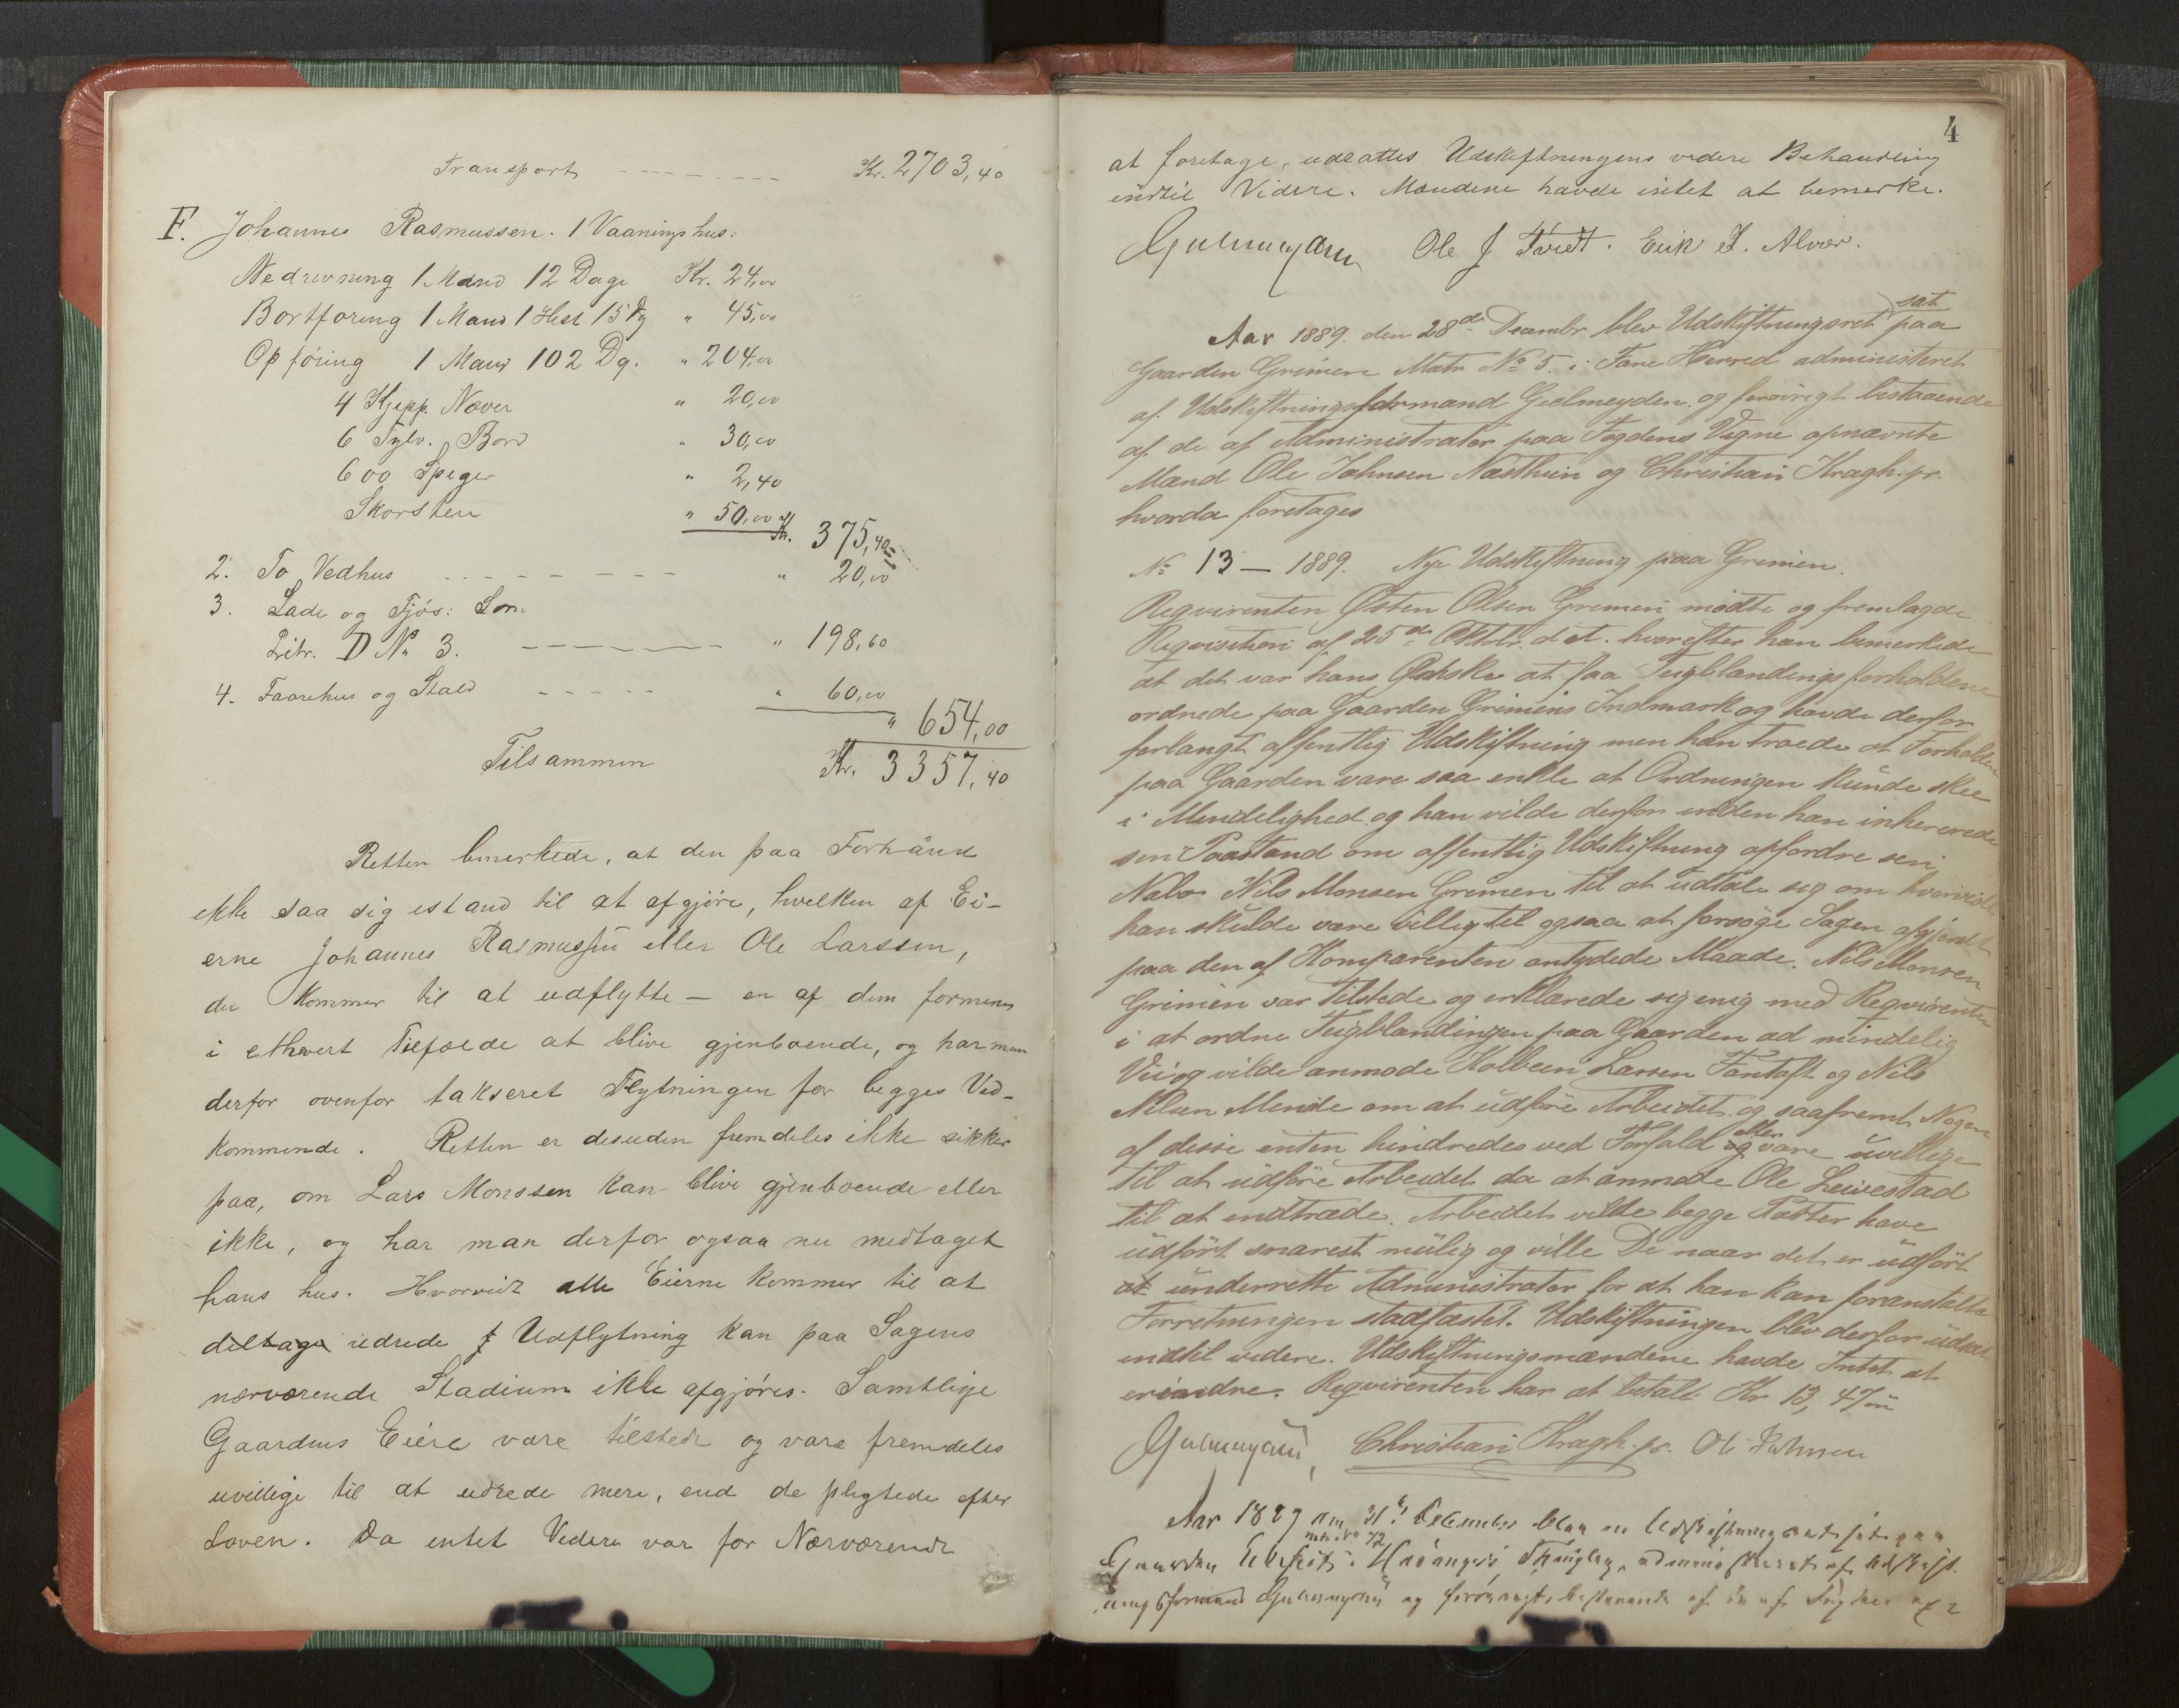 Transport - - - - - - - - - Kr. 2703,40
F. Johannes Rasmussen. 1 Vaaningshus:
Nedrivning 1 Mand 12 Dage Kr. 24,00
Bortføring 1 Mand 1 Hest 15 Dg " 45,00
Opføring 1 Mand 102 Dg. " 204,00
4 Kjepp. Næver " 20,00
6 Tylv. Bord " 30,00
600 Spiger " 2,40
Skorsten " 50,00 Kr. 375,40
2. To Vedhus - - - - - - - - - " 20,00
3. Lade og Fjös: Som
Litr. D No 3. - - - - - - " 198,60
4. Faarehus og Stald - - - - - " 60,00
" 654,00
Tilsammen Kr. 3357,40
Retten bemerkede, at den paa Forhånd
ikke saa sig istand til at afgjöre, hvilken af Ei-
erne Johannes Rasmussen eller Ole Larssen,
der kommer til at udflytte — en af dem formenes
i ethvert Tilfælde at blive gjenboende, og har man
derfor ovenfor takseret Flytningen for begges Ved-
kommende. Retten er desuden fremdeles ikke sikker
paa, om Lars Monssen kan blive gjenboende eller
ikke, og har man derfor ogsaa nu medtaget
hans hus. Hvorvidt alle Eierne kommer til at
deltage udrede f Udflytning kan paa Sagens
nærværende Stadium ikke afgjöres. Samtlige
Gaardens Eiere vare tilstede og vare fremdeles
uvillige til at udrede mere, end de pligtede efter
Loven. Da intet Videre var for Nærværende
4
at foretage, udsattes Udskiftningens videre Behandling
indtil Videre. Mændene havde intet at bemerke.
Gjelmeyden Ole J Tvedt. Erik I. Alvær.
sat
Aar 1889. den 28de Decembr blev Udskiftningsret paa
Gaarden Grimen Matr No 5. i Fane Herred administeret
af Udskiftningsformand Gjelmeyden og forövrigt bestaaende
af de af Administrator paa Fogdens Vegne opnævnte
Mænd Ole Johnsen Næsthun og Christian Kragh. jr.
hvorda foretages
No 13 — 1889. Nye Udskiftning paa Grimen.
Reqvirenten Østen Olsen Grimen mödte og fremlagde
Reqvisition af 25de Oktbr. d.A. hvorefter han bemerkede
at det var hans Ønske at faa Teigblandingsforholdene
ordnede paa Gaarden Grimens Indmark og havde derfor
forlangt offentlig Udskiftning men han troede at Forholdene
paa Gaarden vare saa enkle at Ordningen kunde skee
i Mindelighed og han vilde derfor inden han inhererede
sin Paastand om offentlig Udskiftning opfordre sin
Nabo Nils Monsen Grimen til at udtale sig om hvorvidt
han skulde være villig til ogsaa at forsöge Sagen afgjordt
paa den af Komparenten antydede Maade. Nils Monsen
Grimen var tilstede og erklærede sig enig med Reqvirenten
i at ordne Teigblandingen paa Gaarden ad mindelig
Vei og vilde anmode Kolbeen Larsen Fantoft og Nils
Nilsen Mende om at udföre Arbeidet og saafremt Nogen
af disse enten hindredes ved Forfald og eller vare uvillige
til at udföre Arbeidet da at anmode Ole Leivestad
til at indtræde. Arbeidet vilde begge Parter have
udfört snarest mulig og ville De naar det er udfört
at underrette Administrator for at han kan foranstalte
Forretningen stadfæstet. Udskiftningen blev derfor udsat
indtil videre. Udskiftningsmændene havde Intet at
erindre. Reqvirenten har at betale Kr 13,47
Gjelmeyden, Christian Kragh. jr. Ole Johnsen
Aar 1889 den 31te December blev en Udskiftningsret sat paa
Matr. No 72
Gaarden i Thinglag, administreret af Udskift-
ningsformand Gjelmeyden og forövrigt bestaaende af de af Fogden